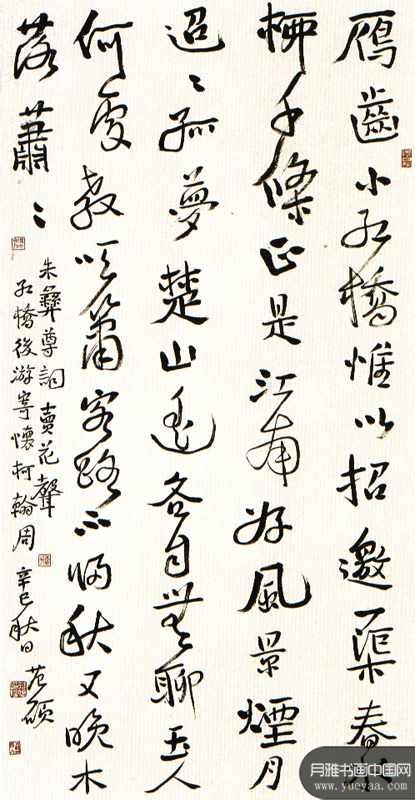 鴈齒小紅橋惟以招邀一渠春水
柳千條正是江南好風景煙月
迢〻孤夢楚山遙各自無聊玉人
何處教吹簫客路秋又晚木
落蕭〻
朱彝尊詞賣花聲
紅橋後游寄懷柯翰周 辛巳秋日 范碩
月雅书画中国网
www.yueyaa.com